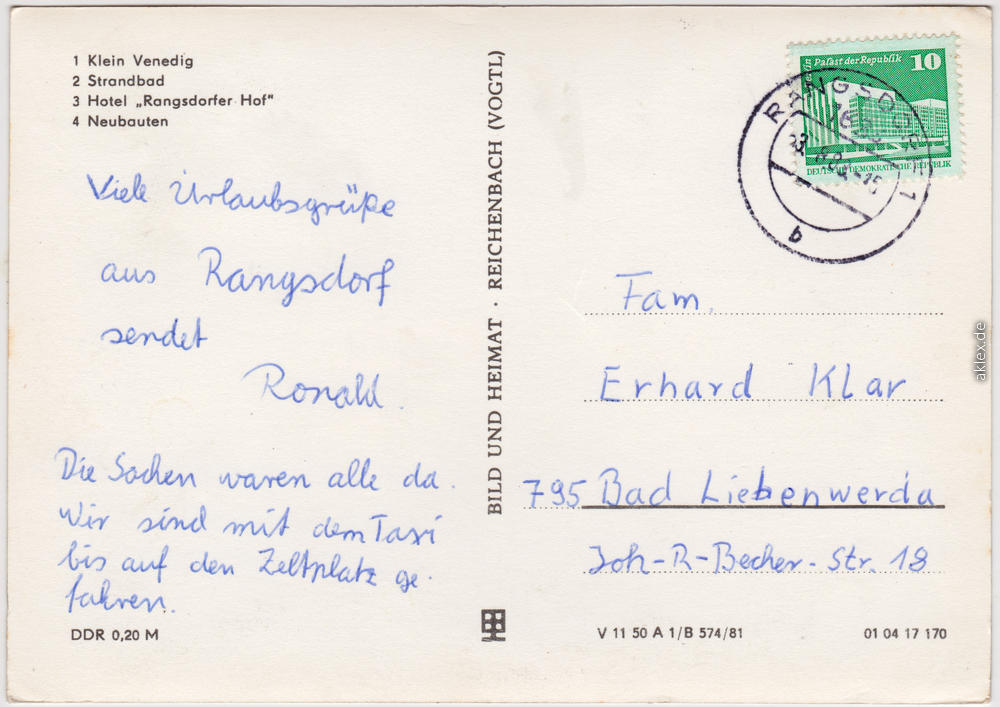 1 Klein Venedig
2 Strandbad
3 Hotel „Rangsdorfer Hof"
4 Neubauten
Viele Urlaubsgrüße
aus Rangsdorf
sendet
Ronald.
Die Sachen waren alle da.
Wir sind mit dem Taxi
bis auf den Zeltplatz ge-
fahren.
DDR 0,20 M
BILD UND HEIMAT · REICHENBACH (VOGTL)
Palast der Republik
10
DEUTSCHE DEMOKRATISCHE REPUBLIK
RANGSDORF 1
b
Fam.
Erhard Klar
795 Bad Liebenwerda
Joh-R-Becher-Str. 18
V 11 50 A 1/B 574/81
01 04 17 170
aklex.de